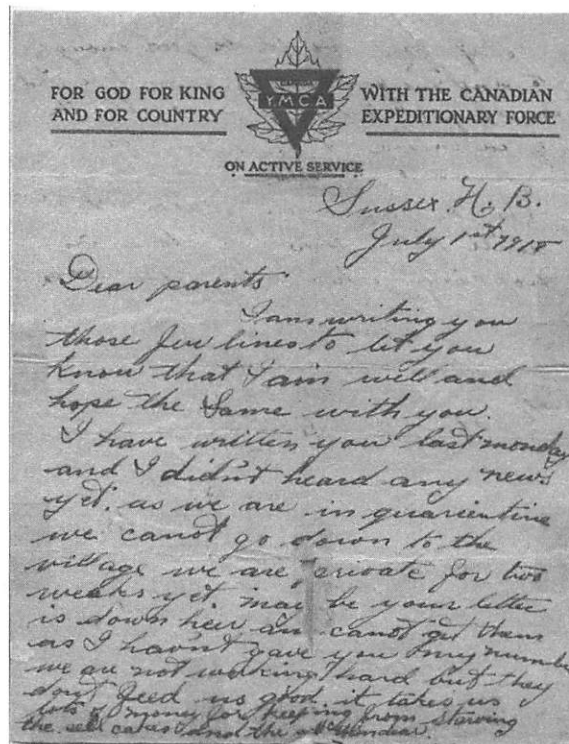 FOR GOD FOR KING
AND FOR COUNTRY
CANADIAN
YMCA
WITH THE CANADIAN
EXPEDITIONARY FORCE
ON ACTIVE SERVICE
Sussex. N. B.
July 1st 1918
Dear parents
I am writing you
those few lines to let you
know that I am well and
hope the Same with you.
I have written you last monday
and I didn't heard any news
yet. as we are in quarientine
we canot go down to the
village we are for two
weaks yet. may be your letter
is down heer an canot get them
as I havn't gave you my number
we are not working hard but they
dont feed us good it takes us
lots of money for keeping from starving
the sell cakes and the